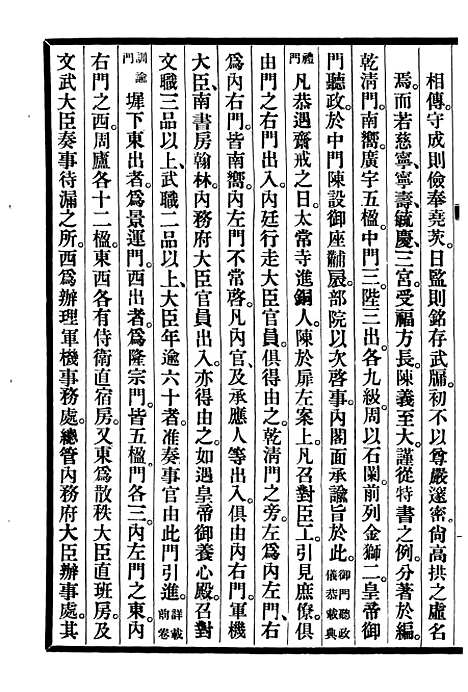 相傳。守成則儉奉堯茨。日監則銘存武牖。初不以尊嚴邃密。尚高拱之虛名
焉。而若慈寧、寧壽、毓慶、三宮受福方長。陳義至大。謹從特書之例。分著於編。
乾淸門。南嚮。廣宇五楹。中門三。陛三出。各九級。周以石闌。前列金獅二。皇帝御
門聽政。於中門陳設御座黼扆。部院以次啓事。內閣面承諭旨於此。御門聽政儀恭載典
禮門凡恭遇齋戒之日。太常寺進銅人。陳於扉左案上。凡召對臣工。引見庶僚。俱
由門之右門出入。內廷行走大臣官員。俱得出入之。乾淸門之旁。左爲內左門、右
爲內右門。皆南嚮。內左門不常啓。凡內官、及承應人等出入。俱由內右門。軍機
大臣、南書房翰林。內務府大臣官員出入亦得由之。如遇皇帝御養心殿。召對
文職三品以上、武職二品以上、大臣年逾六十者。准奏事官由此門引進。詳載前卷
訓諭門墀下東出者爲景運門。西出者爲隆宗門。皆五楹。門各三。內左門之東。內
右門之西。周廬各十二楹。東西各有侍衛直宿房。又東爲散秩大臣直班房。及
文武大臣奏事待漏之所。西爲辦理軍機事務處。總管內務府大臣辦事處。其